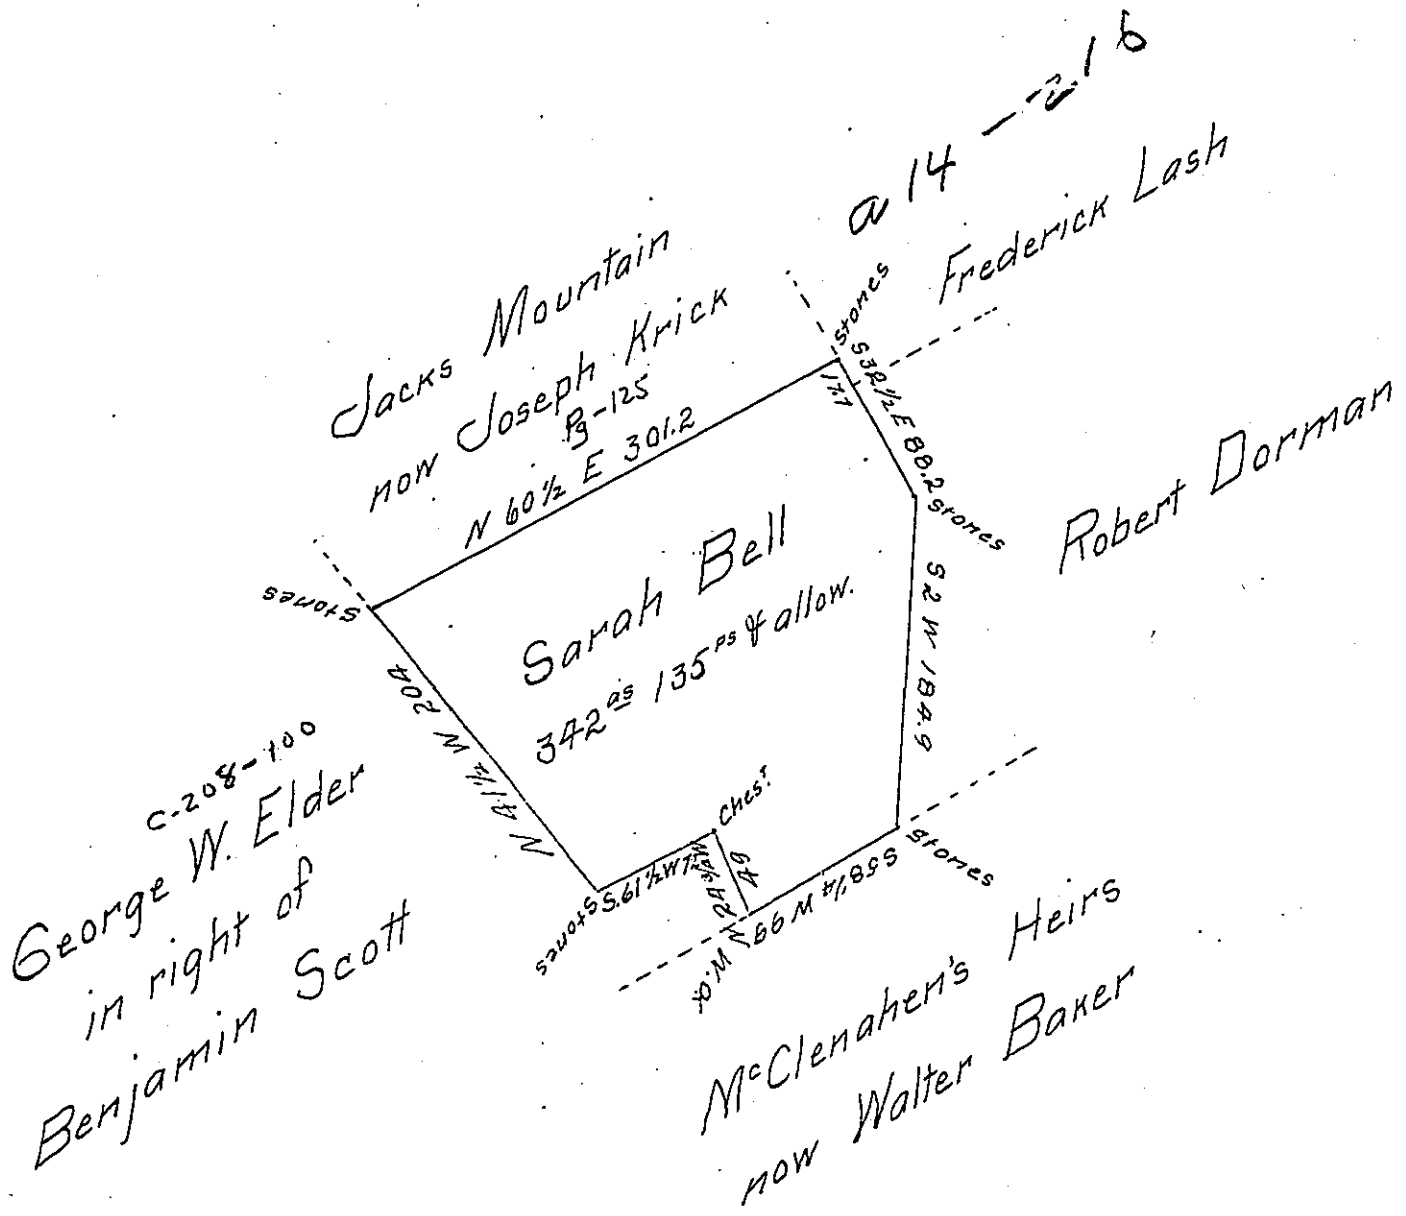 a 14 - 216
Frederick Lash
Jacks Mountain
now Joseph Krick
Pg-125
N 60½ E 301.2
Stones
S 32½ E 88.2
17.7
Stones
Robert Dorman
S 2 W 184.9
Stones
Sarah Bell
342 as 135 ps & allow.
Stones
N 41½ W 204
C-208-100
George W. Elder
in right of
Benjamin Scott
Stones
S. 61½ W 72
Ches.t
49
N 24¾ W
W.O.
S 58¼ W 99
McClenahen's Heirs
now Walter Baker